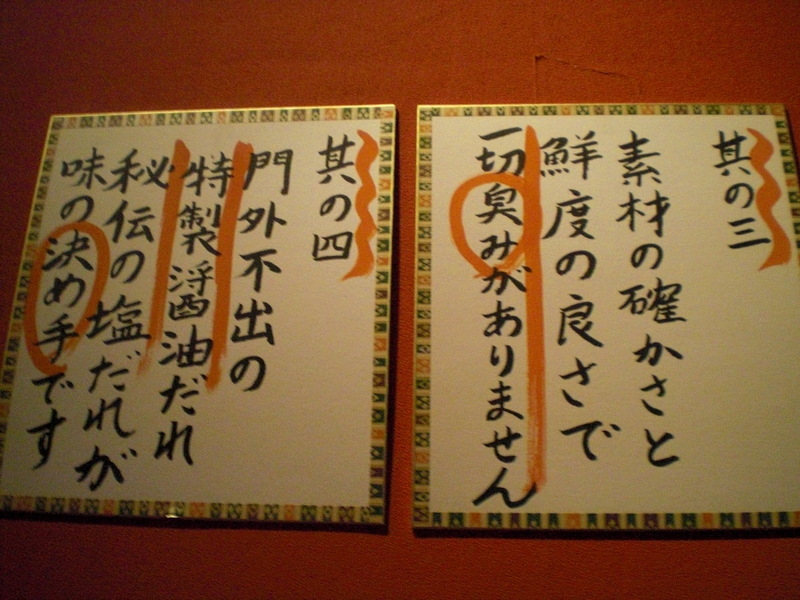 其の三
素材の確かさと
鮮度の良さで
一切臭みがありません
其の四
門外不出の
特製醤油だれ
秘伝の塩だれが
味の決め手です